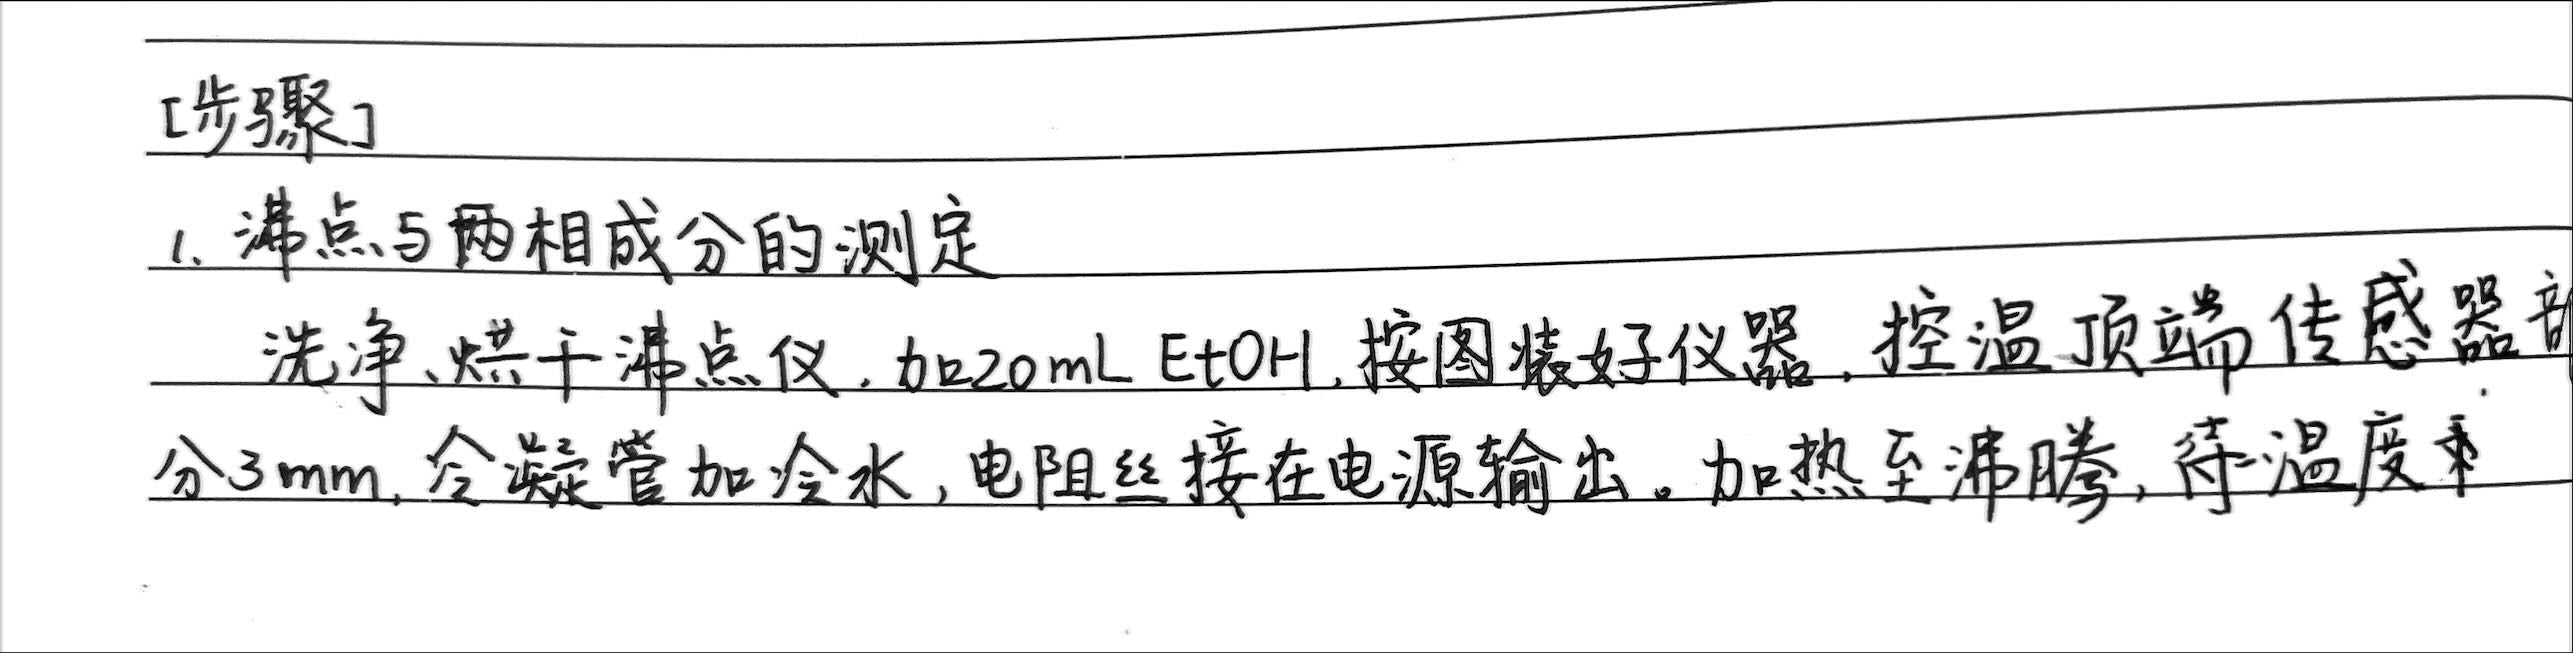 [步骤]
1. 沸点与两相成分的测定
洗净、烘干沸点仪,加20mL EtOH,按图装好仪器,控温顶端传感器部
分3mm,冷凝管加冷水,电阻丝接在电源输出。加热至沸腾,待温度